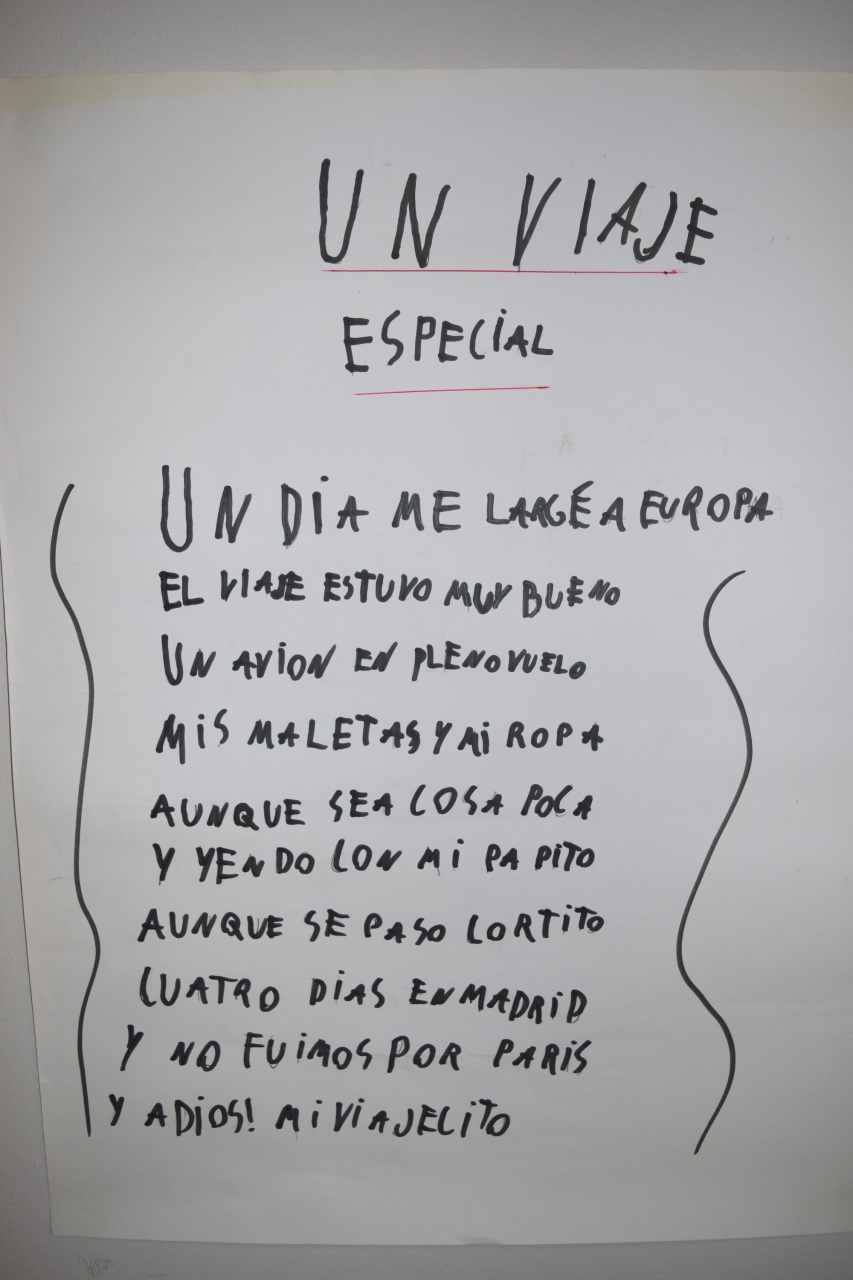 UN VIAJE
ESPECIAL
UN DIA ME LARGÉ A EUROPA
EL VIAJE ESTUVO MUY BUENO
UN AVION EN PLENO VUELO
MIS MALETAS Y MI ROPA
AUNQUE SEA COSA POCA
Y YENDO CON MI PAPITO
AUNQUE SE PASO CORTITO
CUATRO DIAS EN MADRID
Y NO FUIMOS POR PARIS
Y ADIOS! MI VIAJECITO